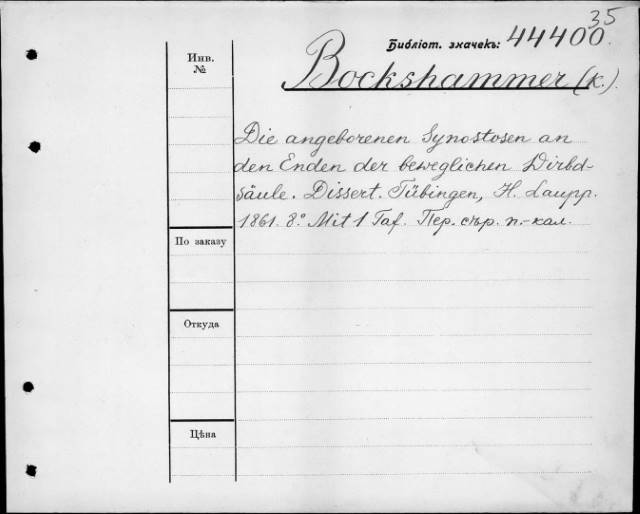 35
Библіот. значекъ: 44400.
Инв.
№
Bockshammer (K.)
Die angeborenen Synostosen an
den Enden der beweglichen Wirbel-
säule. Dissert. Tübingen, H. Laupp.
1861. 8.° Mit 1 Taf. Пер. сѣр. п.-кал.
По заказу
Откуда
Цѣна